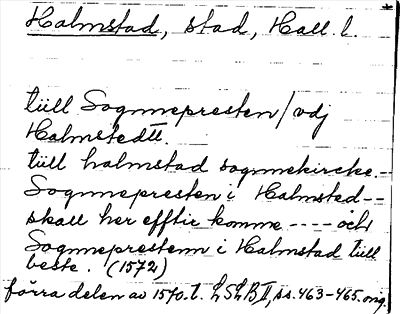 Halmstad, stad, Hall. l.
tiill Sognnepresten / vdj
Halmstedtt.
tiill halmstad sognnekircke. -
Sognnepresten i Halmsted--
skall her efftir komme ---- och
Sognneprestenn i Halmstad tiill
beste. (1572)
förra delen av 1570-t. LSLB II, ss. 463-465. orig.